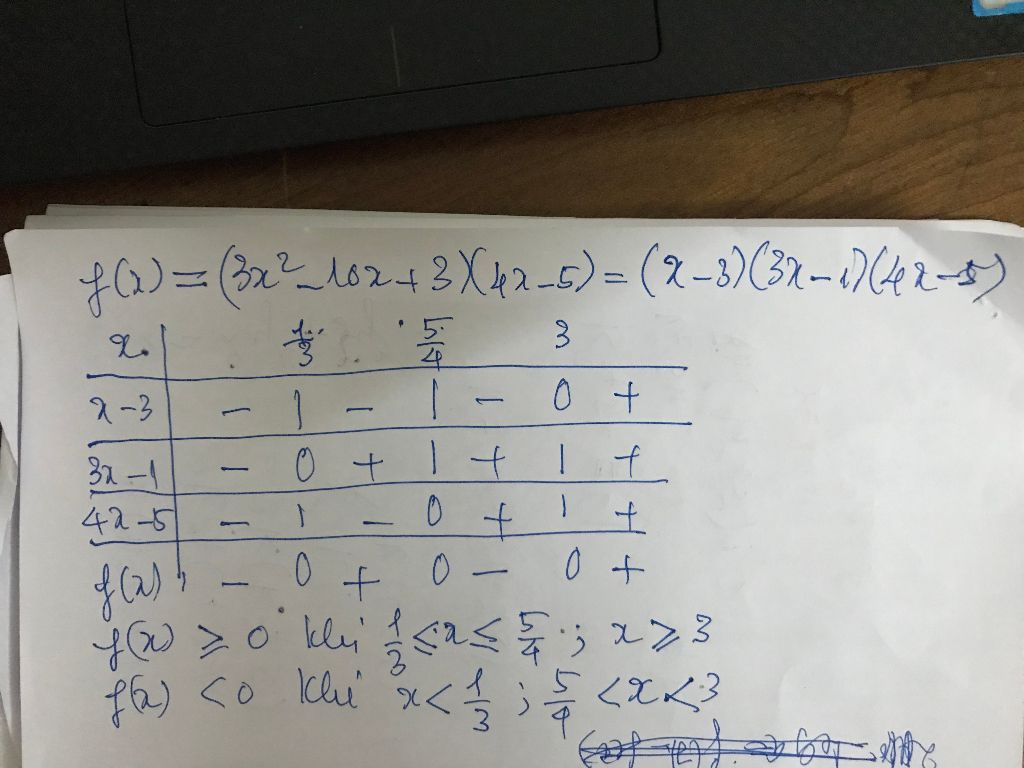 f(x) = (3x² - 10x + 3)(4x - 5) = (x - 3)(3x - 1)(4x - 5)
x | 1/3 5/4 3
x - 3 | - | - | - 0 +
3x - 1 | - 0 + | + | +
4x - 5 | - | - 0 + | +
f(x) | - 0 + 0 - 0 +
f(x) ≥ 0 khi 1/3 ≤ x ≤ 5/4 ; x ≥ 3
f(x) < 0 khi x < 1/3 ; 5/4 < x < 3